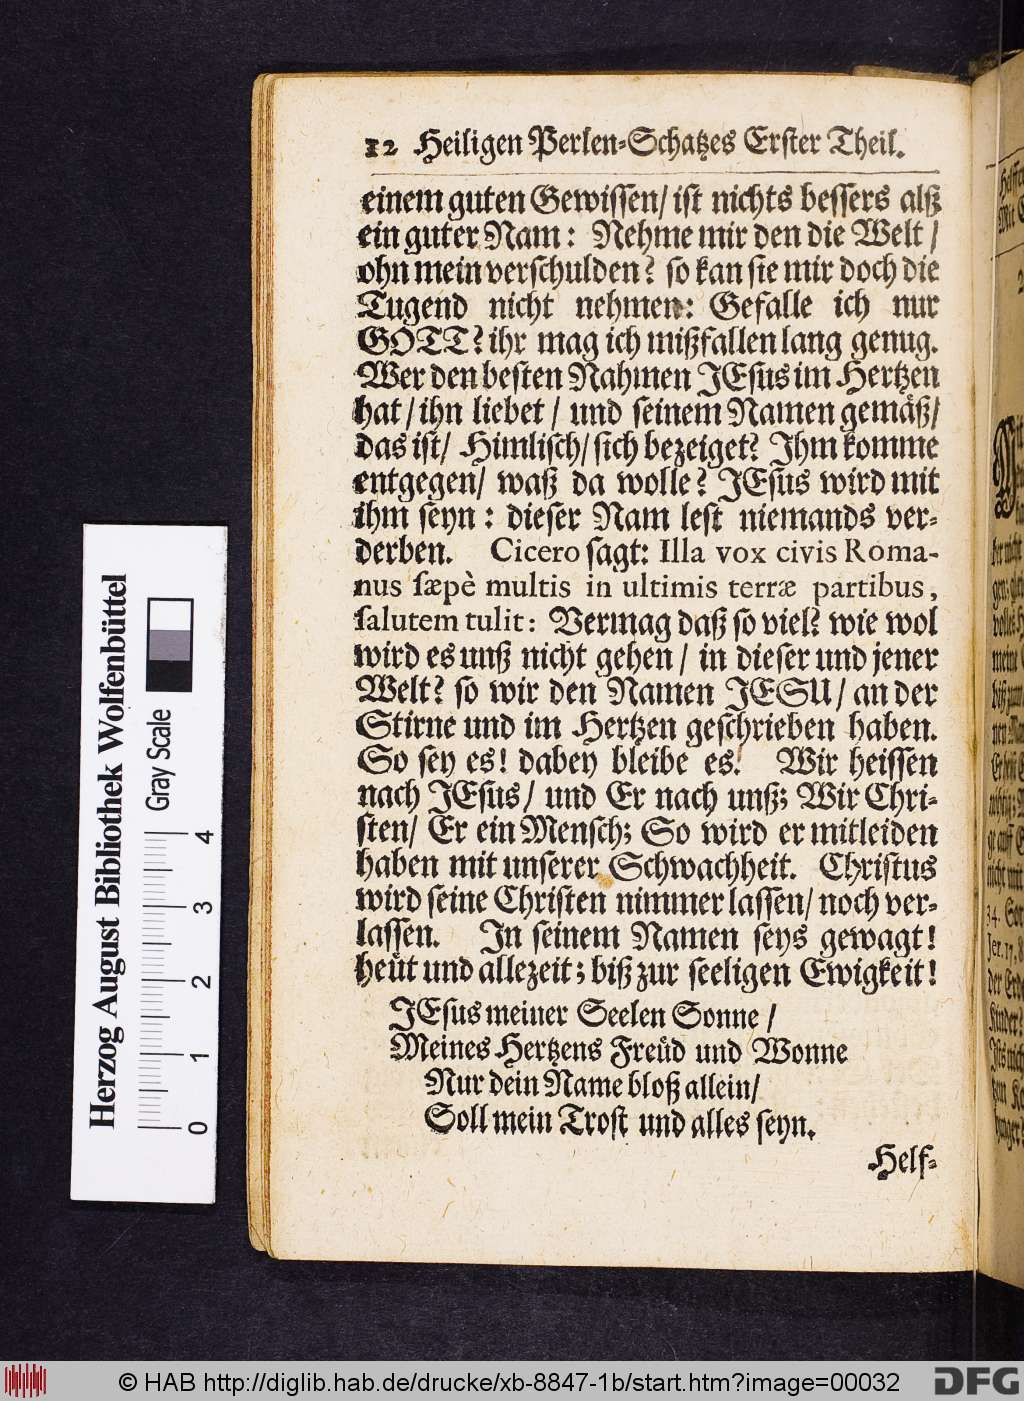 12 Heiligen Perlen-Schatzes Erster Theil.
einem guten Gewissen/ ist nichts bessers alß
ein guter Nam: Nehme mir den die Welt/
ohn mein verschulden? so kan sie mir doch die
Tugend nicht nehmen: Gefalle ich nur
GOTT? ihr mag ich mißfallen lang genug.
Wer den besten Nahmen JEsus im Hertzen
hat/ ihn liebet/ und seinem Namen gemäß/
das ist/ Himlisch/ sich bezeiget? Ihm komme
entgegen/ waß da wolle? JEsus wird mit
ihm seyn: dieser Nam lest niemands ver-
derben. Cicero sagt: Illa vox civis Roma-
nus sæpè multis in ultimis terræ partibus,
salutem tulit: Vermag daß so viel? wie wol
wird es unß nicht gehen/ in dieser und jener
Welt? so wir den Namen JESU/ an der
Stirne und im Hertzen geschrieben haben.
So sey es! dabey bleibe es! Wir heissen
nach JEsus/ und Er nach unß; Wir Chri-
sten/ Er ein Mensch; So wird er mitleiden
haben mit unserer Schwachheit. Christus
wird seine Christen nimmer lassen/ noch ver-
lassen. In seinem Namen seys gewagt!
heüt und allezeit; biß zur seeligen Ewigkeit!
JEsus meiner Seelen Sonne/
Meines Hertzens Freüd und Wonne
Nur dein Name bloß allein/
Soll mein Trost und alles seyn.
Helf-
Herzog August Bibliothek Wolfenbüttel
Gray Scale
0 1 2 3 4
© HAB http://diglib.hab.de/drucke/xb-8847-1b/start.htm?image=00032
DFG